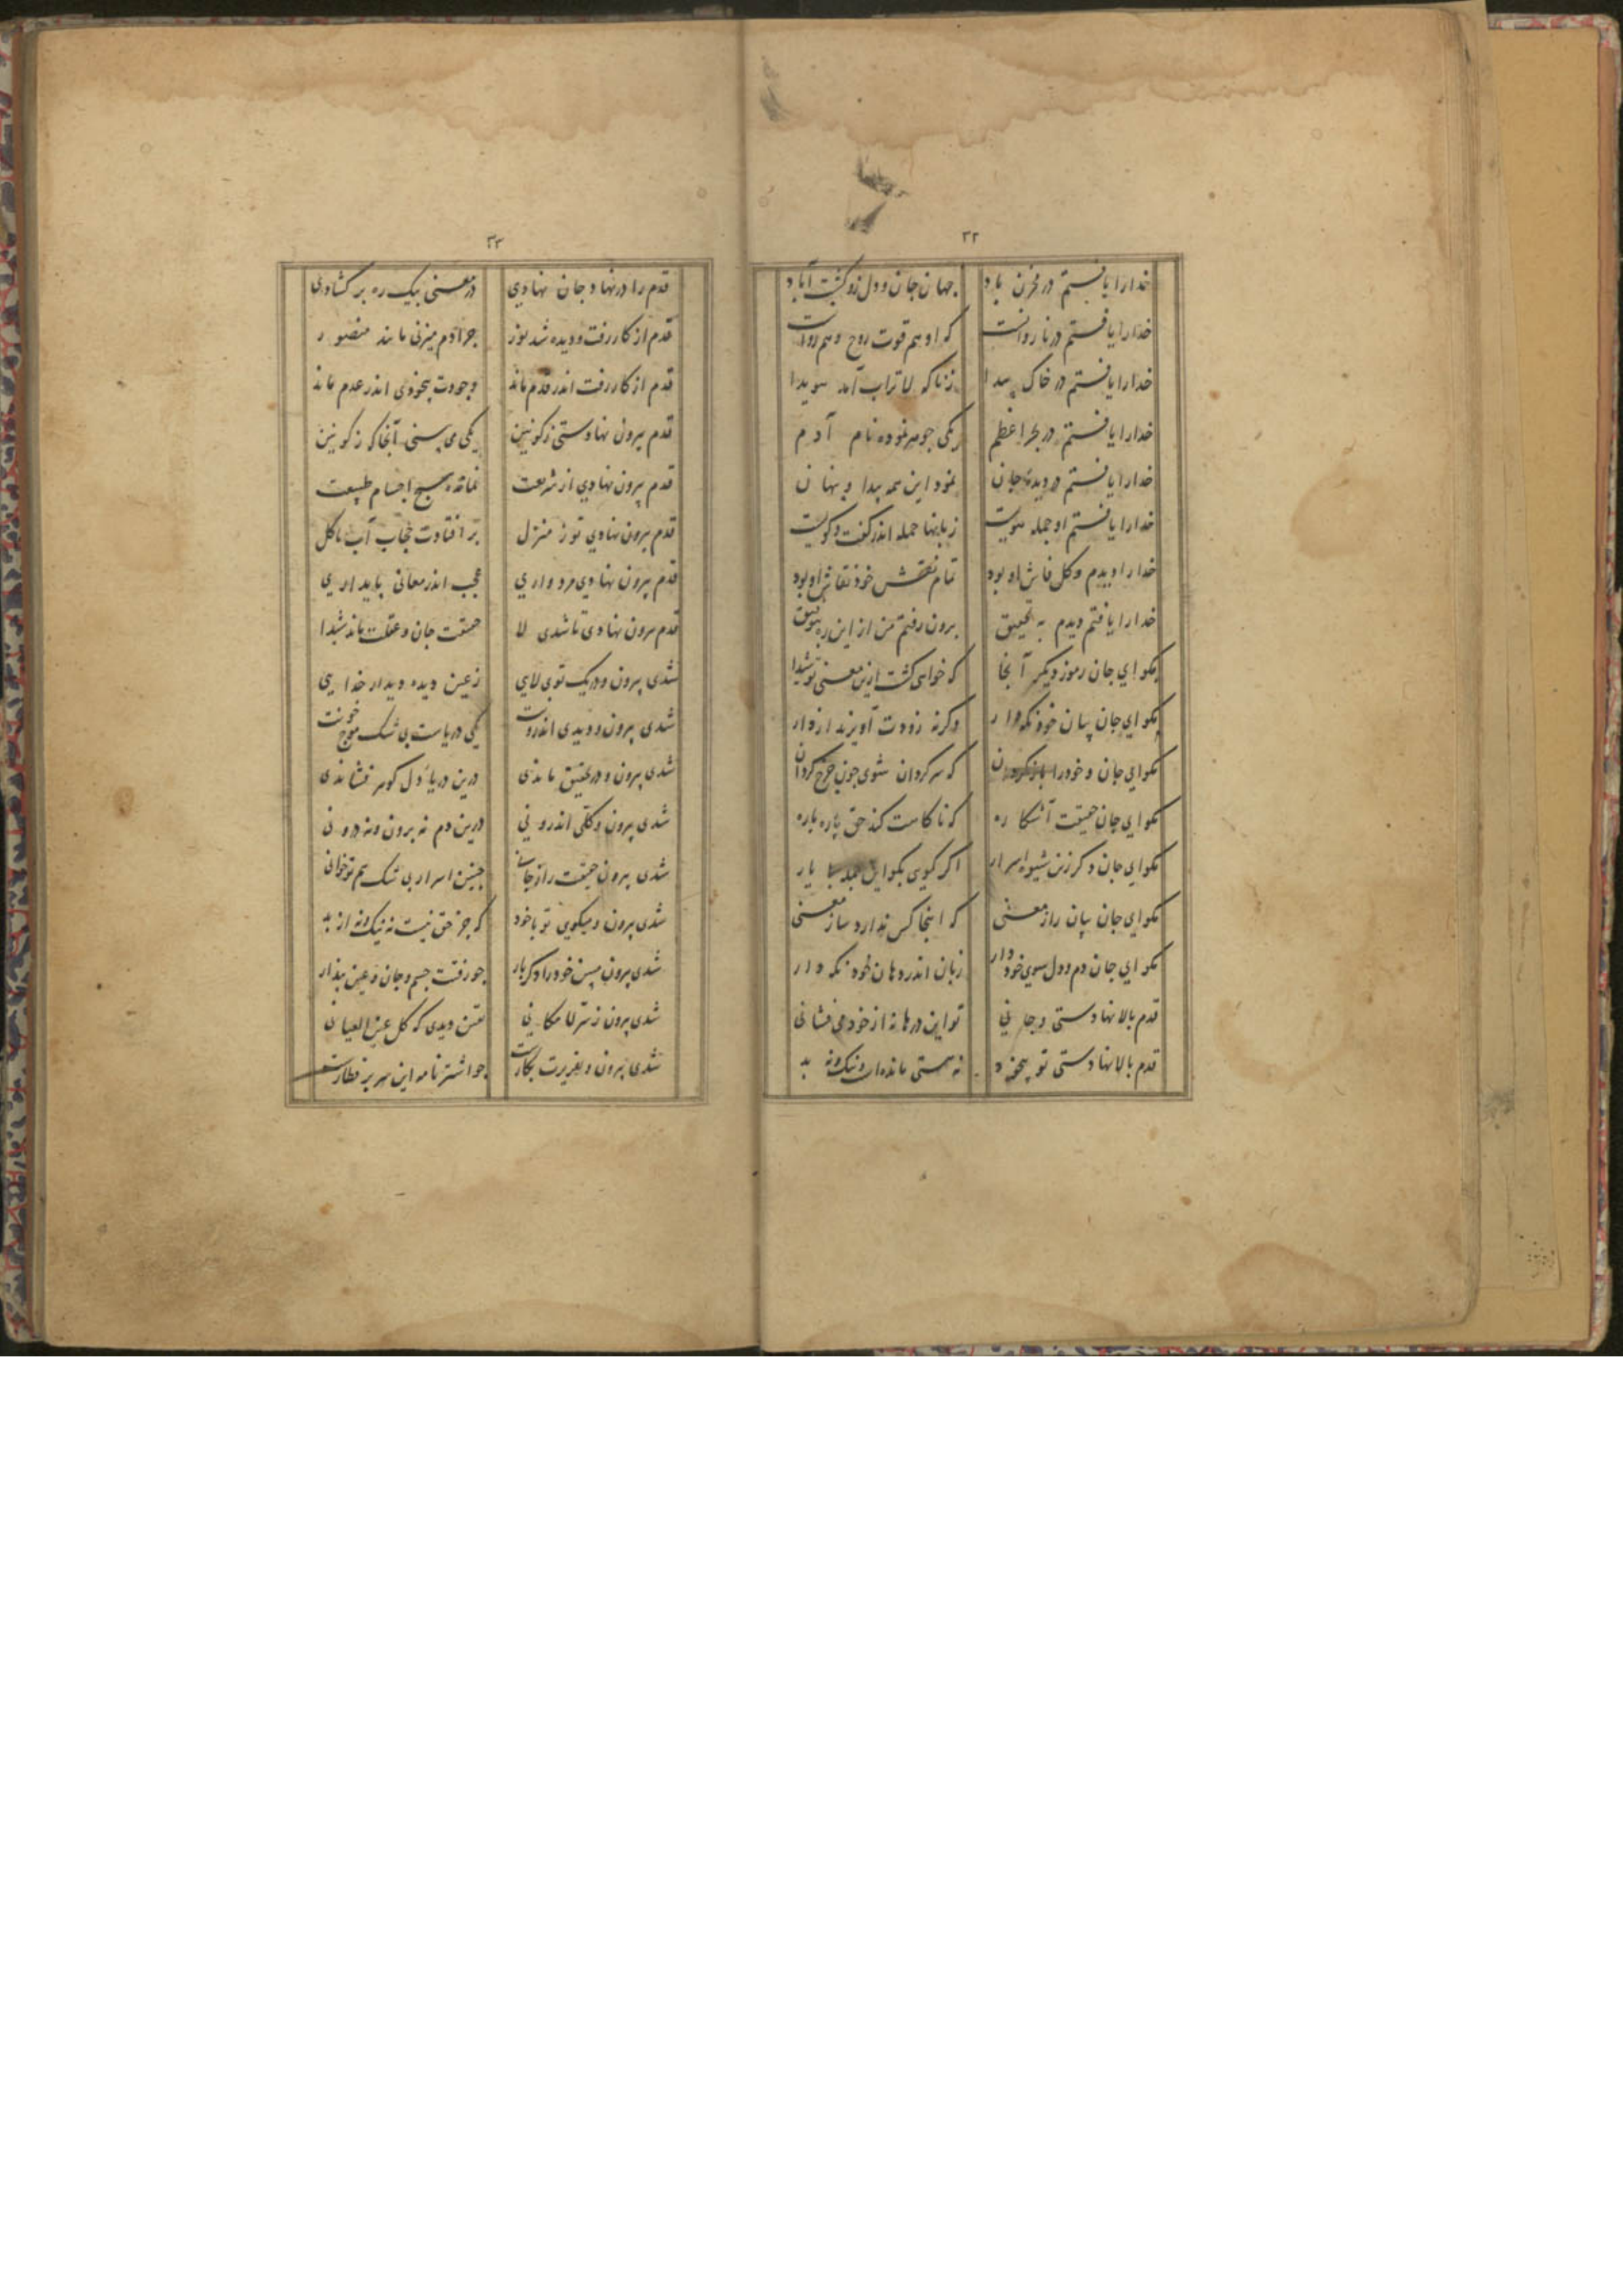 ۳۲
خدارا یافتستم در مخزن باد جهان جان و دل زو گشت آباد
خدارا یافتستم در نار روانست که او هم قوت روح و هم روانست
خدارا یافتستم در خاک پیدا ز ناکه لا تراب آمد هویدا
خدارا یافتستم در بحر اعظم یکی جوهر نموده نام آدم
خدارا یافتستم در دیدهٔ جان نمود این همه پیدا و پنهان
خدارا یافتستم او جمله هویست زبانها جمله اندر گفت و گویست
خدارا دیدم و کل فاش او بود تمام نقش خود نقاش او بود
خدارا یافتم دیدم به تحقیق برون رفتم من از این ره بتوفیق
بکو ای جان رموز دیکر آنجا که خواهی گشت ازین معنی تو شیدا
بکو ای جان بیان خود نکه دار وکرنه زودت آویزند از دار
بکو ای جان و خودرا باز کردان که سرکردان شوی چون چرخ کردان
بکو ای جان حقیقت آشکاره که تا کامت کند حق پاره پاره
بکو ای جان دکر زین شیوه اسرار اکر کوی بکو این جمله با یار
بکو ای جان بیان راز معنی که اینجا کس ندارد ساز معنی
بکو ای جان دم و دل سوی خود دار زبان اندر دهان خود نکه دار
قدم بالا نهادستی و جانی تو این درها نه از خود می فشانی
قدم بالا نهادستی تو بیخود نه هستی مانده ات نه نیک و نه بد
۳۳
قدم را در نهاد جان نهادی در معنی بیک ره بر کشادی
قدم از کار رفت و دیده شد نور چرا دم میزنی مانند منصور
قدم از کار رفت اندر قدم ماند وجودت بیخودی اندر عدم ماند
قدم بیرون نهادستی ز کونین یکی می بینی آنجا که ز کونین
قدم بیرون نهادی از شریعت نمانده هیچ اجسام طبیعت
قدم بیرون نهادی تو ز منزل بر افتادت حجاب آب با کل
قدم بیرون نهادی مردواری عجب اندر معانی پایداری
قدم بیرون نهادی تا شدی لا حقیقت جان و عقلت ماند شیدا
شدی بیرون و در یک توی لای ز عین دیده دیدار خدایی
شدی بیرون و دیدی اندرونت یکی دریاست بی شک موج خونت
شدی بیرون و در تحقیق ماندی درین دریای دل کوهر فشاندی
شدی بیرون و کلی اندرونی درین دم نه برون و نه درونی
شدی بیرون حقیقت راز جانی چنین اسرار بی شک هم تو خوانی
شدی بیرون و میکویی تو با خود که جز حق نیست نه نیک و نه از بد
شدی بیرون مبین خودرا دکر بار چو رفتت جسم و جان و عین پندار
شدی بیرون ز ستر لامکانی یقین دیدی که کل عین العیانی
شدی بیرون و بغیرت بکارت چو اشترنامه این سر بر قطارت